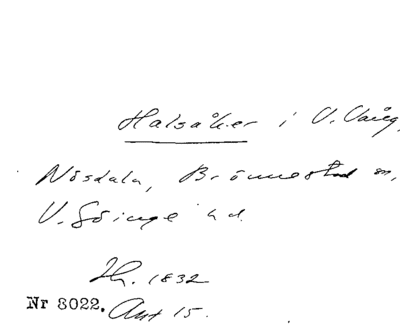 Halsåker i V. Vång,
Nösdala, Brönnestad sn,
V. Göinge hd.
Lh. 1832
Nr 8022. Akt 15.